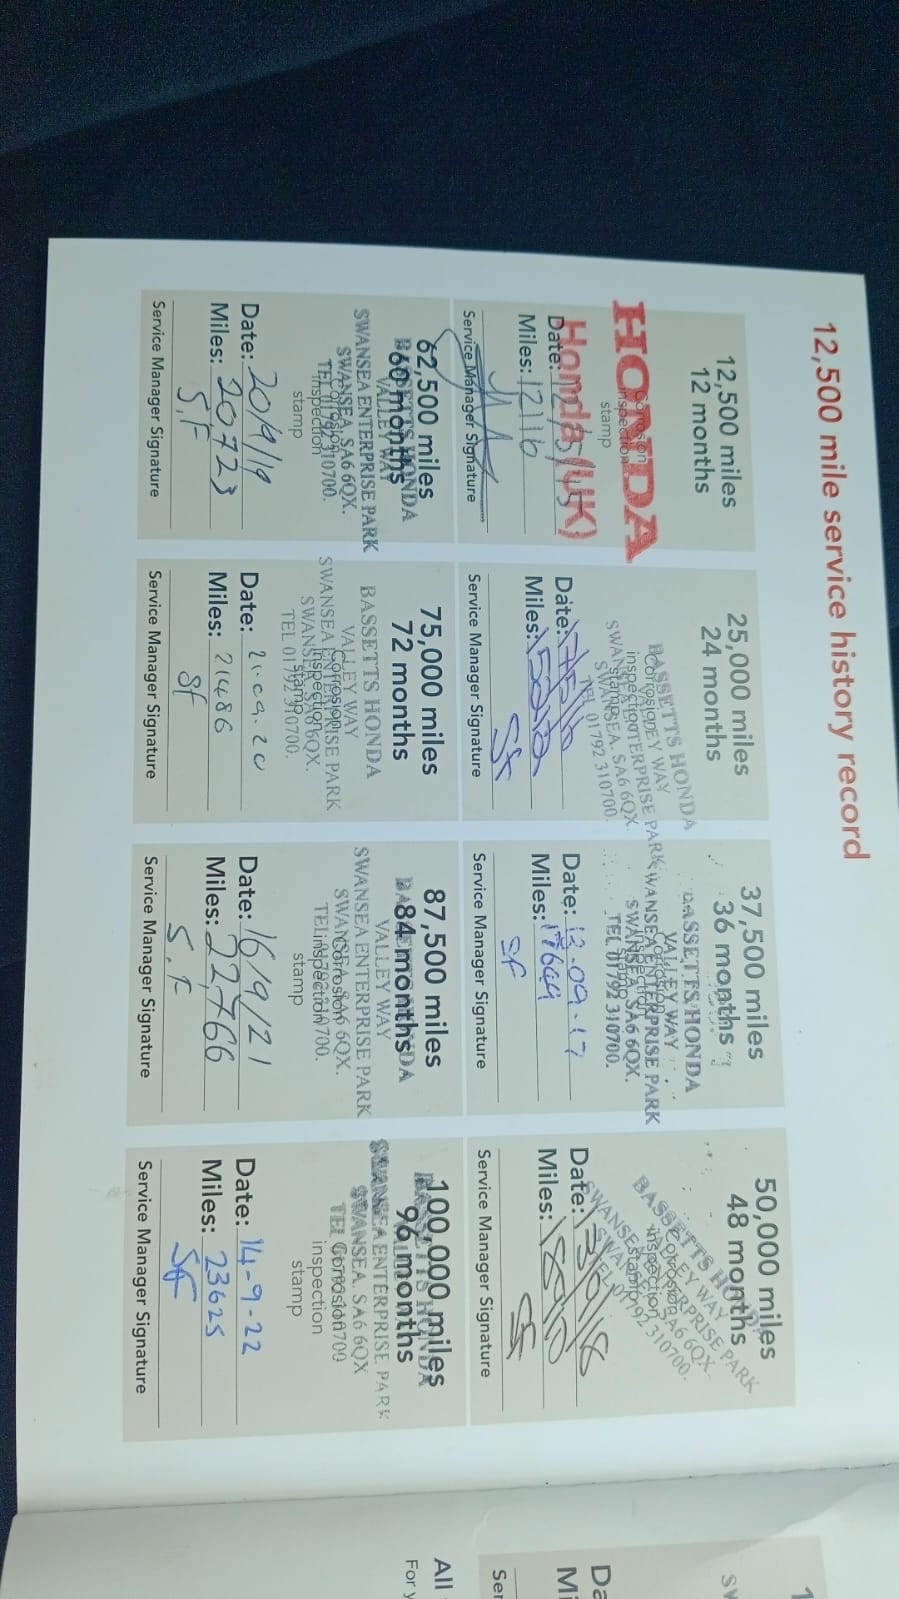 12,500 mile service history record
12,500 miles
12 months
HONDA
Corrosion
inspection
stamp
Honda (UK)
Date:
Miles: 12116
Service Manager Signature
25,000 miles
24 months
BASSETTS HONDA
VALLEY WAY
SWANSEA ENTERPRISE PARK
SWANSEA. SA6 6QX.
TEL 01792 310700.
Corrosion
inspection
stamp
Date:
Miles:
SF
Service Manager Signature
37,500 miles
36 months
BASSETTS HONDA
VALLEY WAY
SWANSEA ENTERPRISE PARK
SWANSEA. SA6 6QX.
TEL 01792 310700.
Corrosion
inspection
stamp
Date: 12.09.17
Miles: 17644
SF
Service Manager Signature
50,000 miles
48 months
BASSETTS HONDA
VALLEY WAY
SWANSEA ENTERPRISE PARK
SWANSEA. SA6 6QX.
TEL 01792 310700.
Corrosion
inspection
stamp
Date: 13/9/18
Miles:
SF
Service Manager Signature
62,500 miles
60 months
BASSETTS HONDA
VALLEY WAY
SWANSEA ENTERPRISE PARK
SWANSEA. SA6 6QX.
TEL 01792 310700.
Corrosion
inspection
stamp
Date: 20/9/19
Miles: 20723
S.F
Service Manager Signature
75,000 miles
72 months
BASSETTS HONDA
VALLEY WAY
SWANSEA ENTERPRISE PARK
SWANSEA. SA6 6QX.
TEL 01792 310700.
Corrosion
inspection
stamp
Date: 21.09.20
Miles: 21486
SF
Service Manager Signature
87,500 miles
84 months
BASSETTS HONDA
VALLEY WAY
SWANSEA ENTERPRISE PARK
SWANSEA. SA6 6QX.
TEL 01792 310700.
Corrosion
inspection
stamp
Date: 16/9/21
Miles: 22,766
S.F
Service Manager Signature
100,000 miles
96 months
BASSETTS HONDA
SWANSEA ENTERPRISE PARK
SWANSEA. SA6 6QX
TEL 01792 310700
Corrosion
inspection
stamp
Date: 14-9-22
Miles: 23625
SF
Service Manager Signature
All
For y